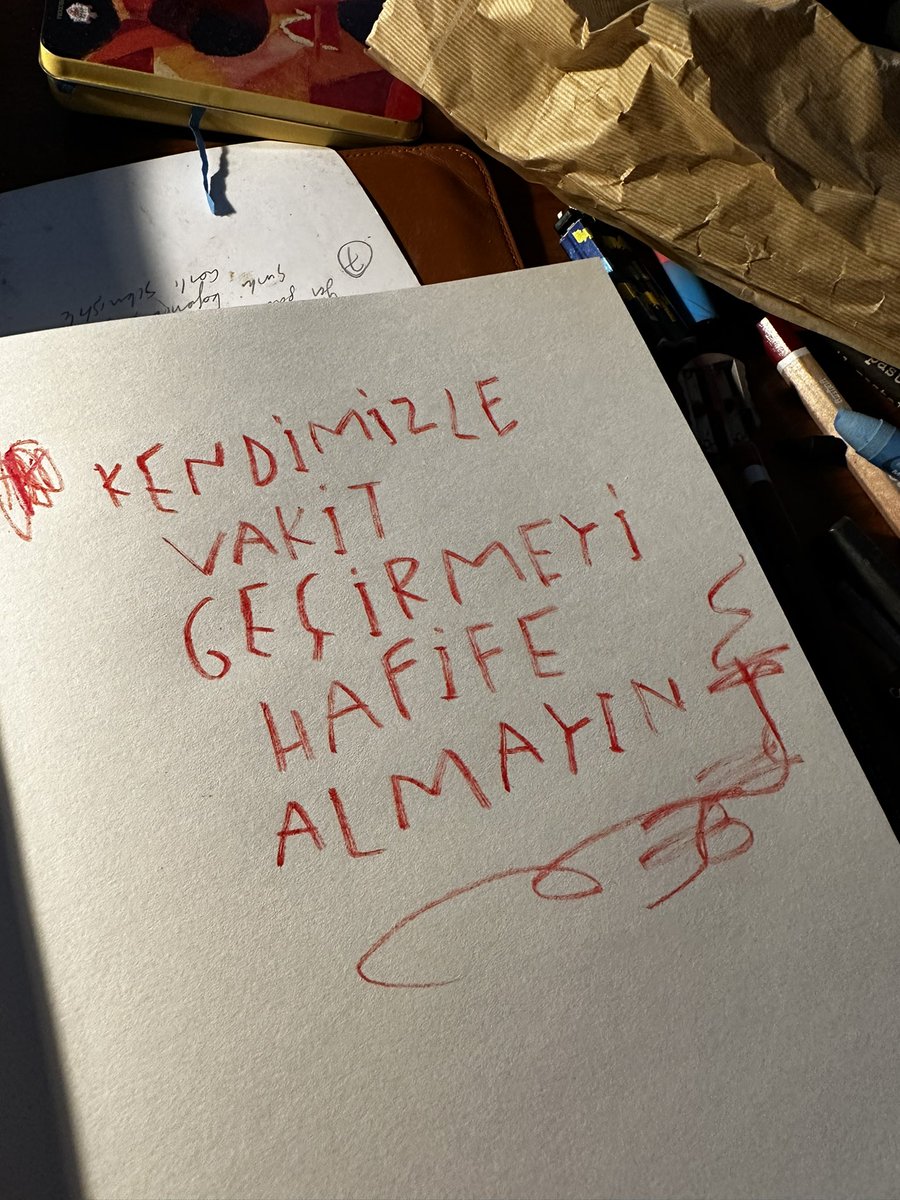 7
KENDİMİZLE
VAKİT
GEÇİRMEYİ
HAFİFE
ALMAYIN